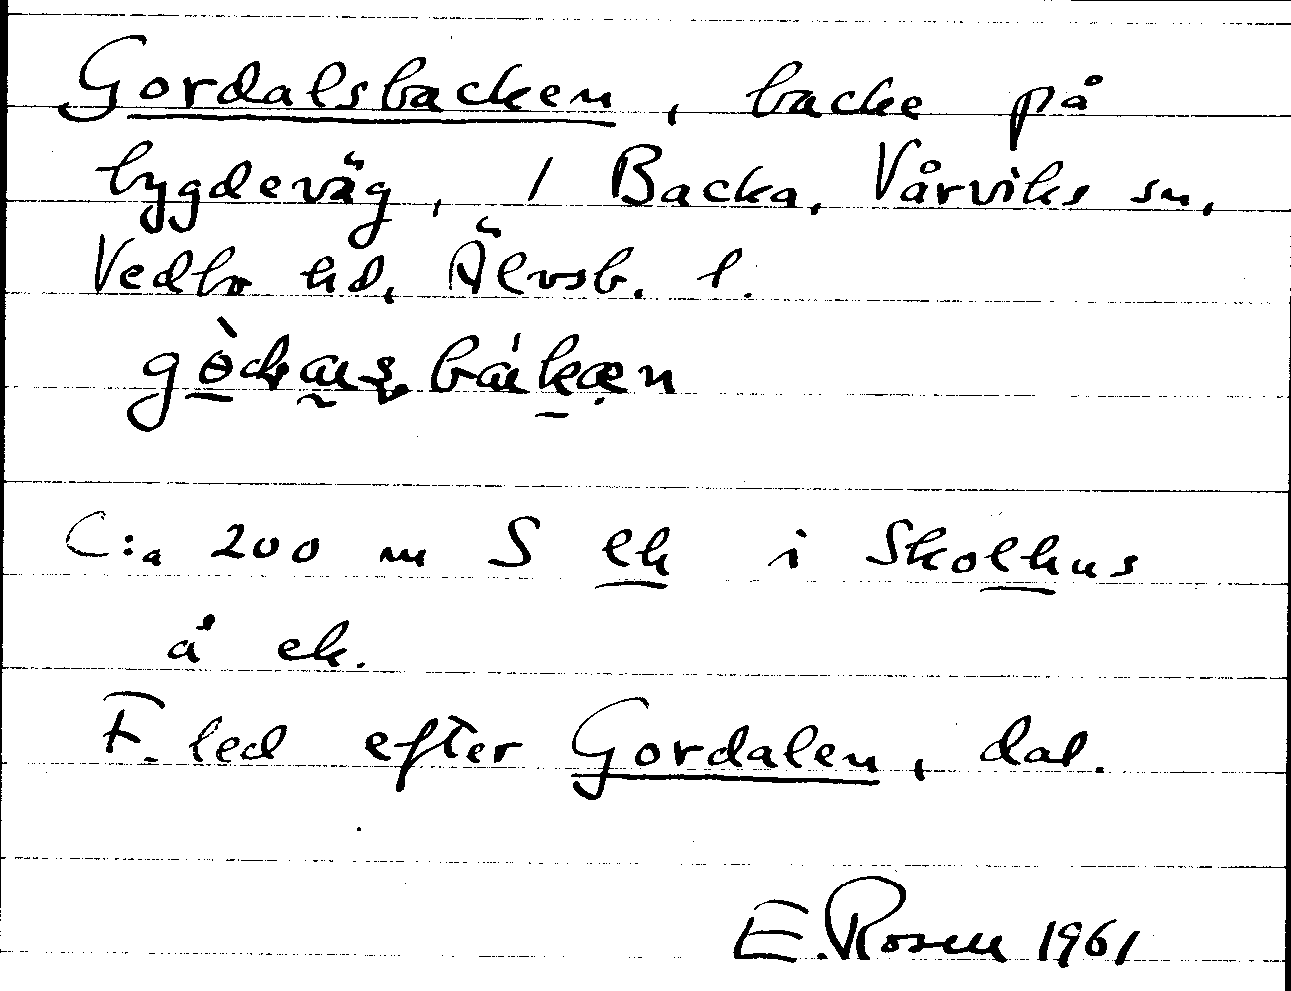 Gordalsbacken, backe på
bygdeväg, 1 Backa, Vårviks sn,
Vedbo hd, Älvsb. l.
C:a 200 m S lk i Skolkus
å ek.
F. led efter Gordalen, dal.
E. Rosen 1961